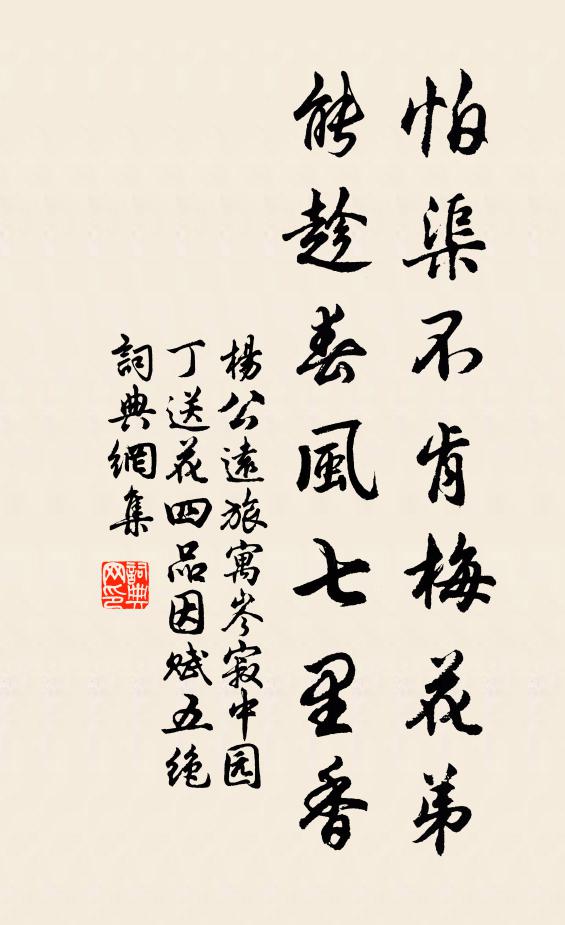 怕渠不肯梅花弟
能趁春風七里香
楊公遠旅寓岑寂中园
丁送花四品因赋五绝
詞典網集
詞典网印